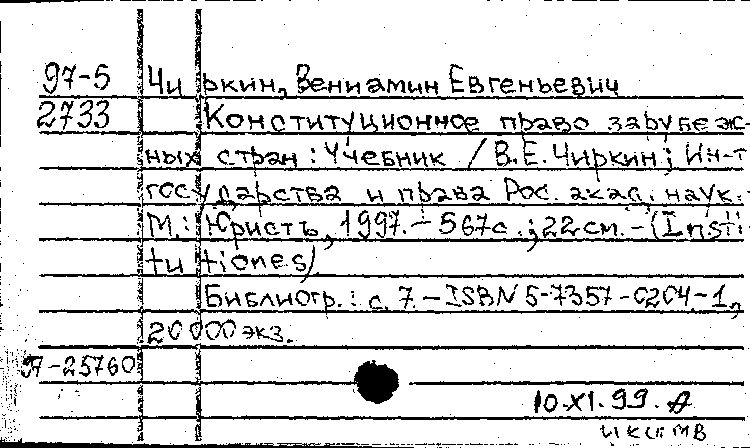 97-5 Чиркин, Вениамин Евгеньевич
2733 Конституционное право зарубеж-
ных стран: Учебник / В.Е. Чиркин; Ин-т
государства и права Рос. акад. наук.
М.: Юристъ, 1997. - 567с.; 22см. - (Insti-
tutiones)
Библиогр.: с. 7. - ISBN 5-7357-0204-1,
20000 экз.
Я-25760
10.XI.99.